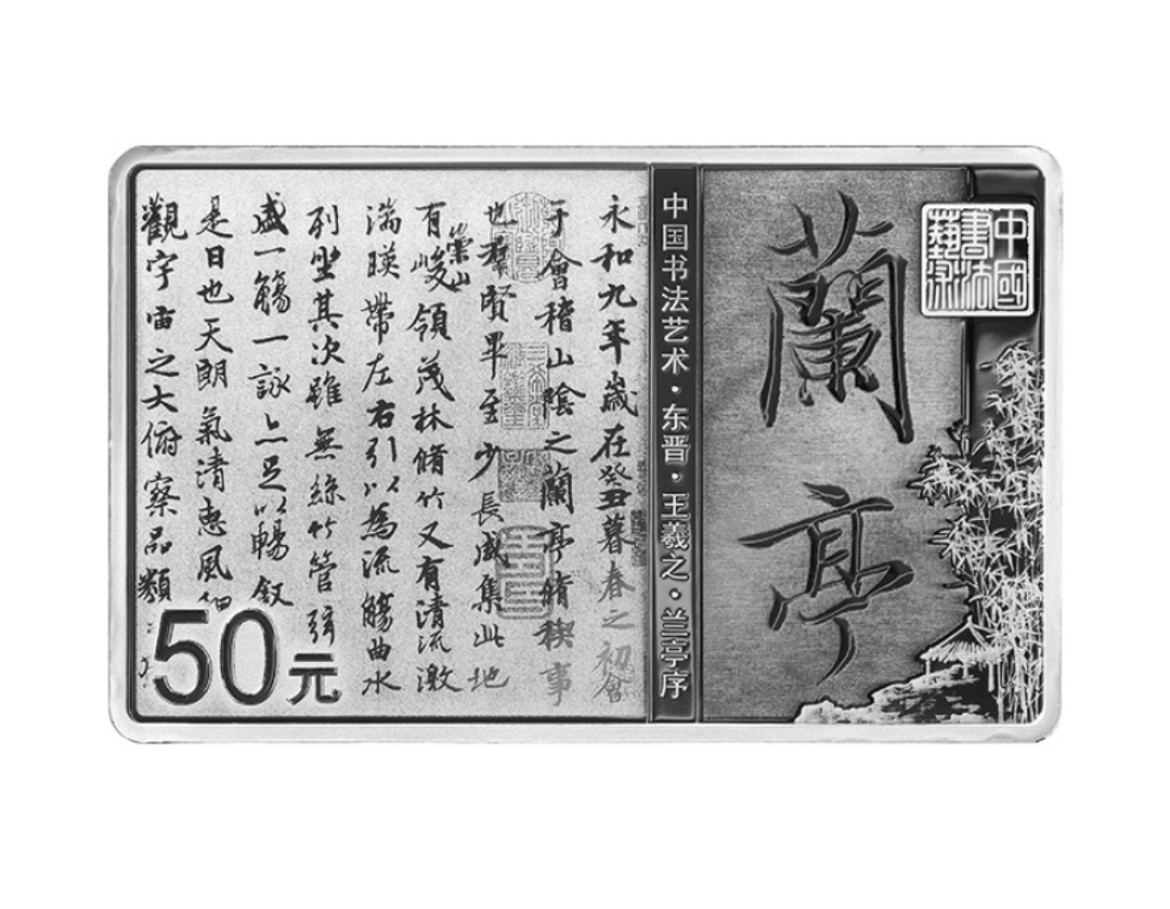 中國
書法
藝術
蘭亭
中国书法艺术·东晋·王羲之·兰亭序
永和九年歲在癸丑暮春之初會
于會稽山陰之蘭亭脩稧事
也羣賢畢至少長咸集此地
有崇山峻領茂林脩竹又有清流激
湍暎帶左右引以為流觴曲水
列坐其次雖無絲竹管弦
盛一觴一詠亦足以暢敘
是日也天朗氣清惠風
觀宇宙之大俯察品類
50元